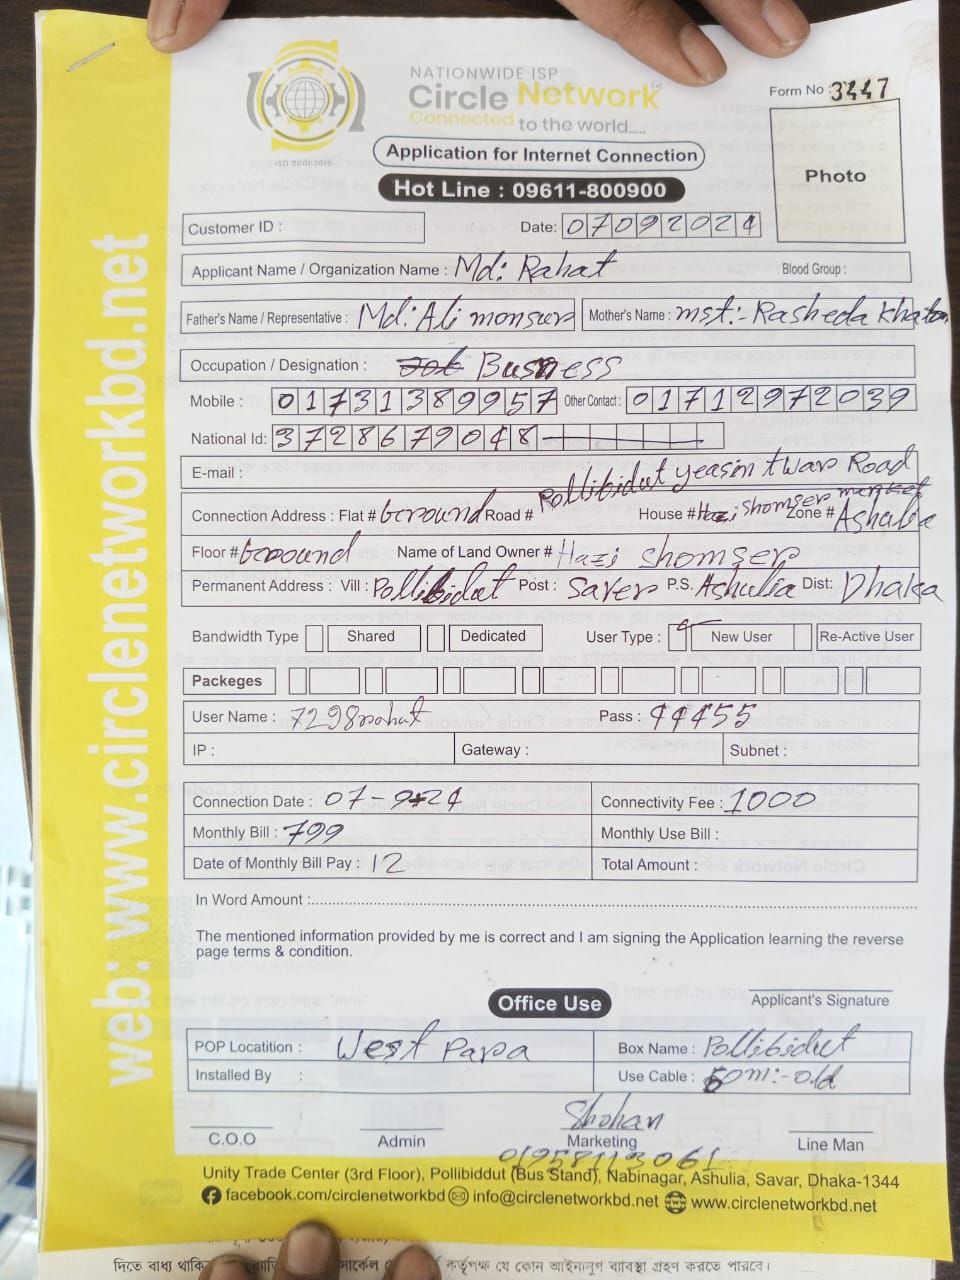 NATIONWIDE ISP
Circle Network
Connected to the world.....
ISO 9001:2015
Form No : 3447
Application for Internet Connection
Photo
Hot Line : 09611-800900
Customer ID : Date: 07092024
Applicant Name / Organization Name : Md: Rahat Blood Group :
Father's Name / Representative : Md: Ali monsur Mother's Name : mst:- Rasheda khaton
Occupation / Designation : Job Business
Mobile : 01731389957 Other Contact : 01712972039
National Id: 3728679048
E-mail :
Connection Address : Flat # Ground Road # Pollibidut yeasin twar Road House # Hazi shomser market Zone # Ashulia
Floor # Ground Name of Land Owner # Hazi shomser
Permanent Address : Vill : Pollibidut Post : Saver P.S. Ashulia Dist: Dhaka
Bandwidth Type Shared Dedicated User Type : New User Re-Active User
Packeges
User Name : 7298rahat Pass : 44455
IP : Gateway : Subnet :
Connection Date : 07-9-24 Connectivity Fee : 1000
Monthly Bill : 799 Monthly Use Bill :
Date of Monthly Bill Pay : 12 Total Amount :
In Word Amount :
The mentioned information provided by me is correct and I am signing the Application learning the reverse
page terms & condition.
Office Use
Applicant's Signature
POP Locatition : West Para Box Name : Pollibidut
Installed By : Use Cable : 50m:-old
Shohan
C.O.O Admin Marketing Line Man
01958113061
Unity Trade Center (3rd Floor), Pollibiddut (Bus Stand), Nabinagar, Ashulia, Savar, Dhaka-1344
facebook.com/circlenetworkbd info@circlenetworkbd.net www.circlenetworkbd.net
web: www.circlenetworkbd.net
দিতে বাধ্য থাকি সার্কেল কর্তৃপক্ষ যে কোন আইনানুগ ব্যবস্থা গ্রহণ করতে পারবে।